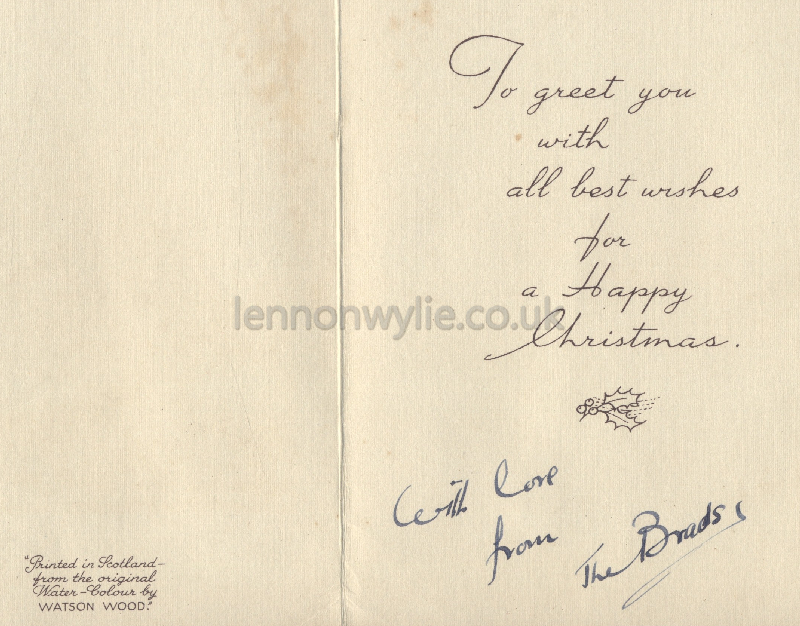 To greet you
with
all best wishes
for
a Happy
Christmas.
lennonwylie.co.uk
With love
from
The Brads
"Printed in Scotland-
from the original
Water-Colour by
WATSON WOOD."